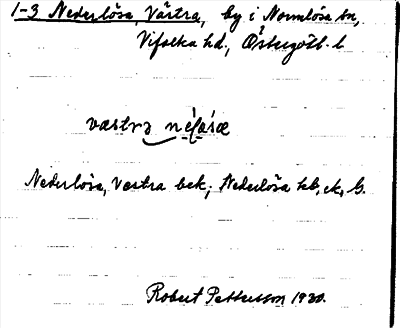 1-3 Nederlösa, Västra, by i Normlösa sn,
Vifolka hd., Östergötl. l
væstrə
Nederlösa, Västra bek; Nederlösa hb, ek, G.
Robert Pettersson 1930.